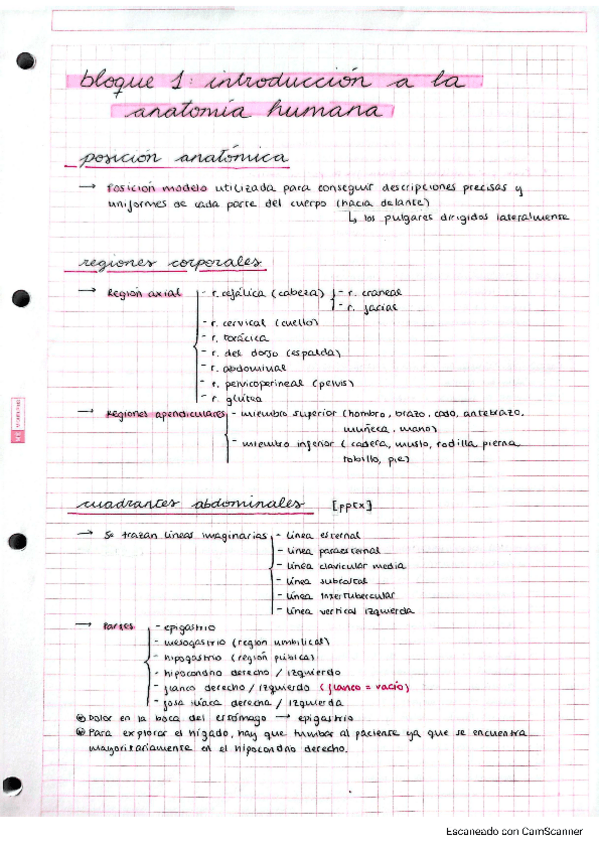 bloque 1: introducción a la
anatomía humana
posición anatómica
→ Posición modelo utilizada para conseguir descripciones precisas y
uniformes de cada parte del cuerpo (hacia delante)
↳ los pulgares dirigidos lateralmente
regiones corporales
→ Región axial - r. cefálica (cabeza) - r. craneal
- r. facial
- r. cervical (cuello)
- r. torácica
- r. del dorso (espalda)
- r. abdominal
- r. pelvicoperineal (pelvis)
- r. glútea
→ Regiones apendiculares - miembro superior (hombro, brazo, codo, antebrazo,
muñeca, mano)
- miembro inferior (cadera, muslo, rodilla pierna
tobillo, pie)
cuadrantes abdominales [pptx]
→ Se trazan líneas imaginarias - línea esternal
- línea paraesternal
- línea clavicular media
- línea subcostal
- línea intertubercular
- línea vertical izquierda
→ Partes - epigastrio
- mesogastrio (región umbilical)
- hipogastrio (región púbica)
- hipocondrio derecho / izquierdo
- flanco derecho / izquierdo (flanco = vacío)
- fosa ilíaca derecha / izquierda
Dolor en la boca del estómago → epigastrio
Para explorar el hígado, hay que tumbar al paciente ya que se encuentra
mayoritariamente en el hipocondrio derecho.
Escaneado con CamScanner